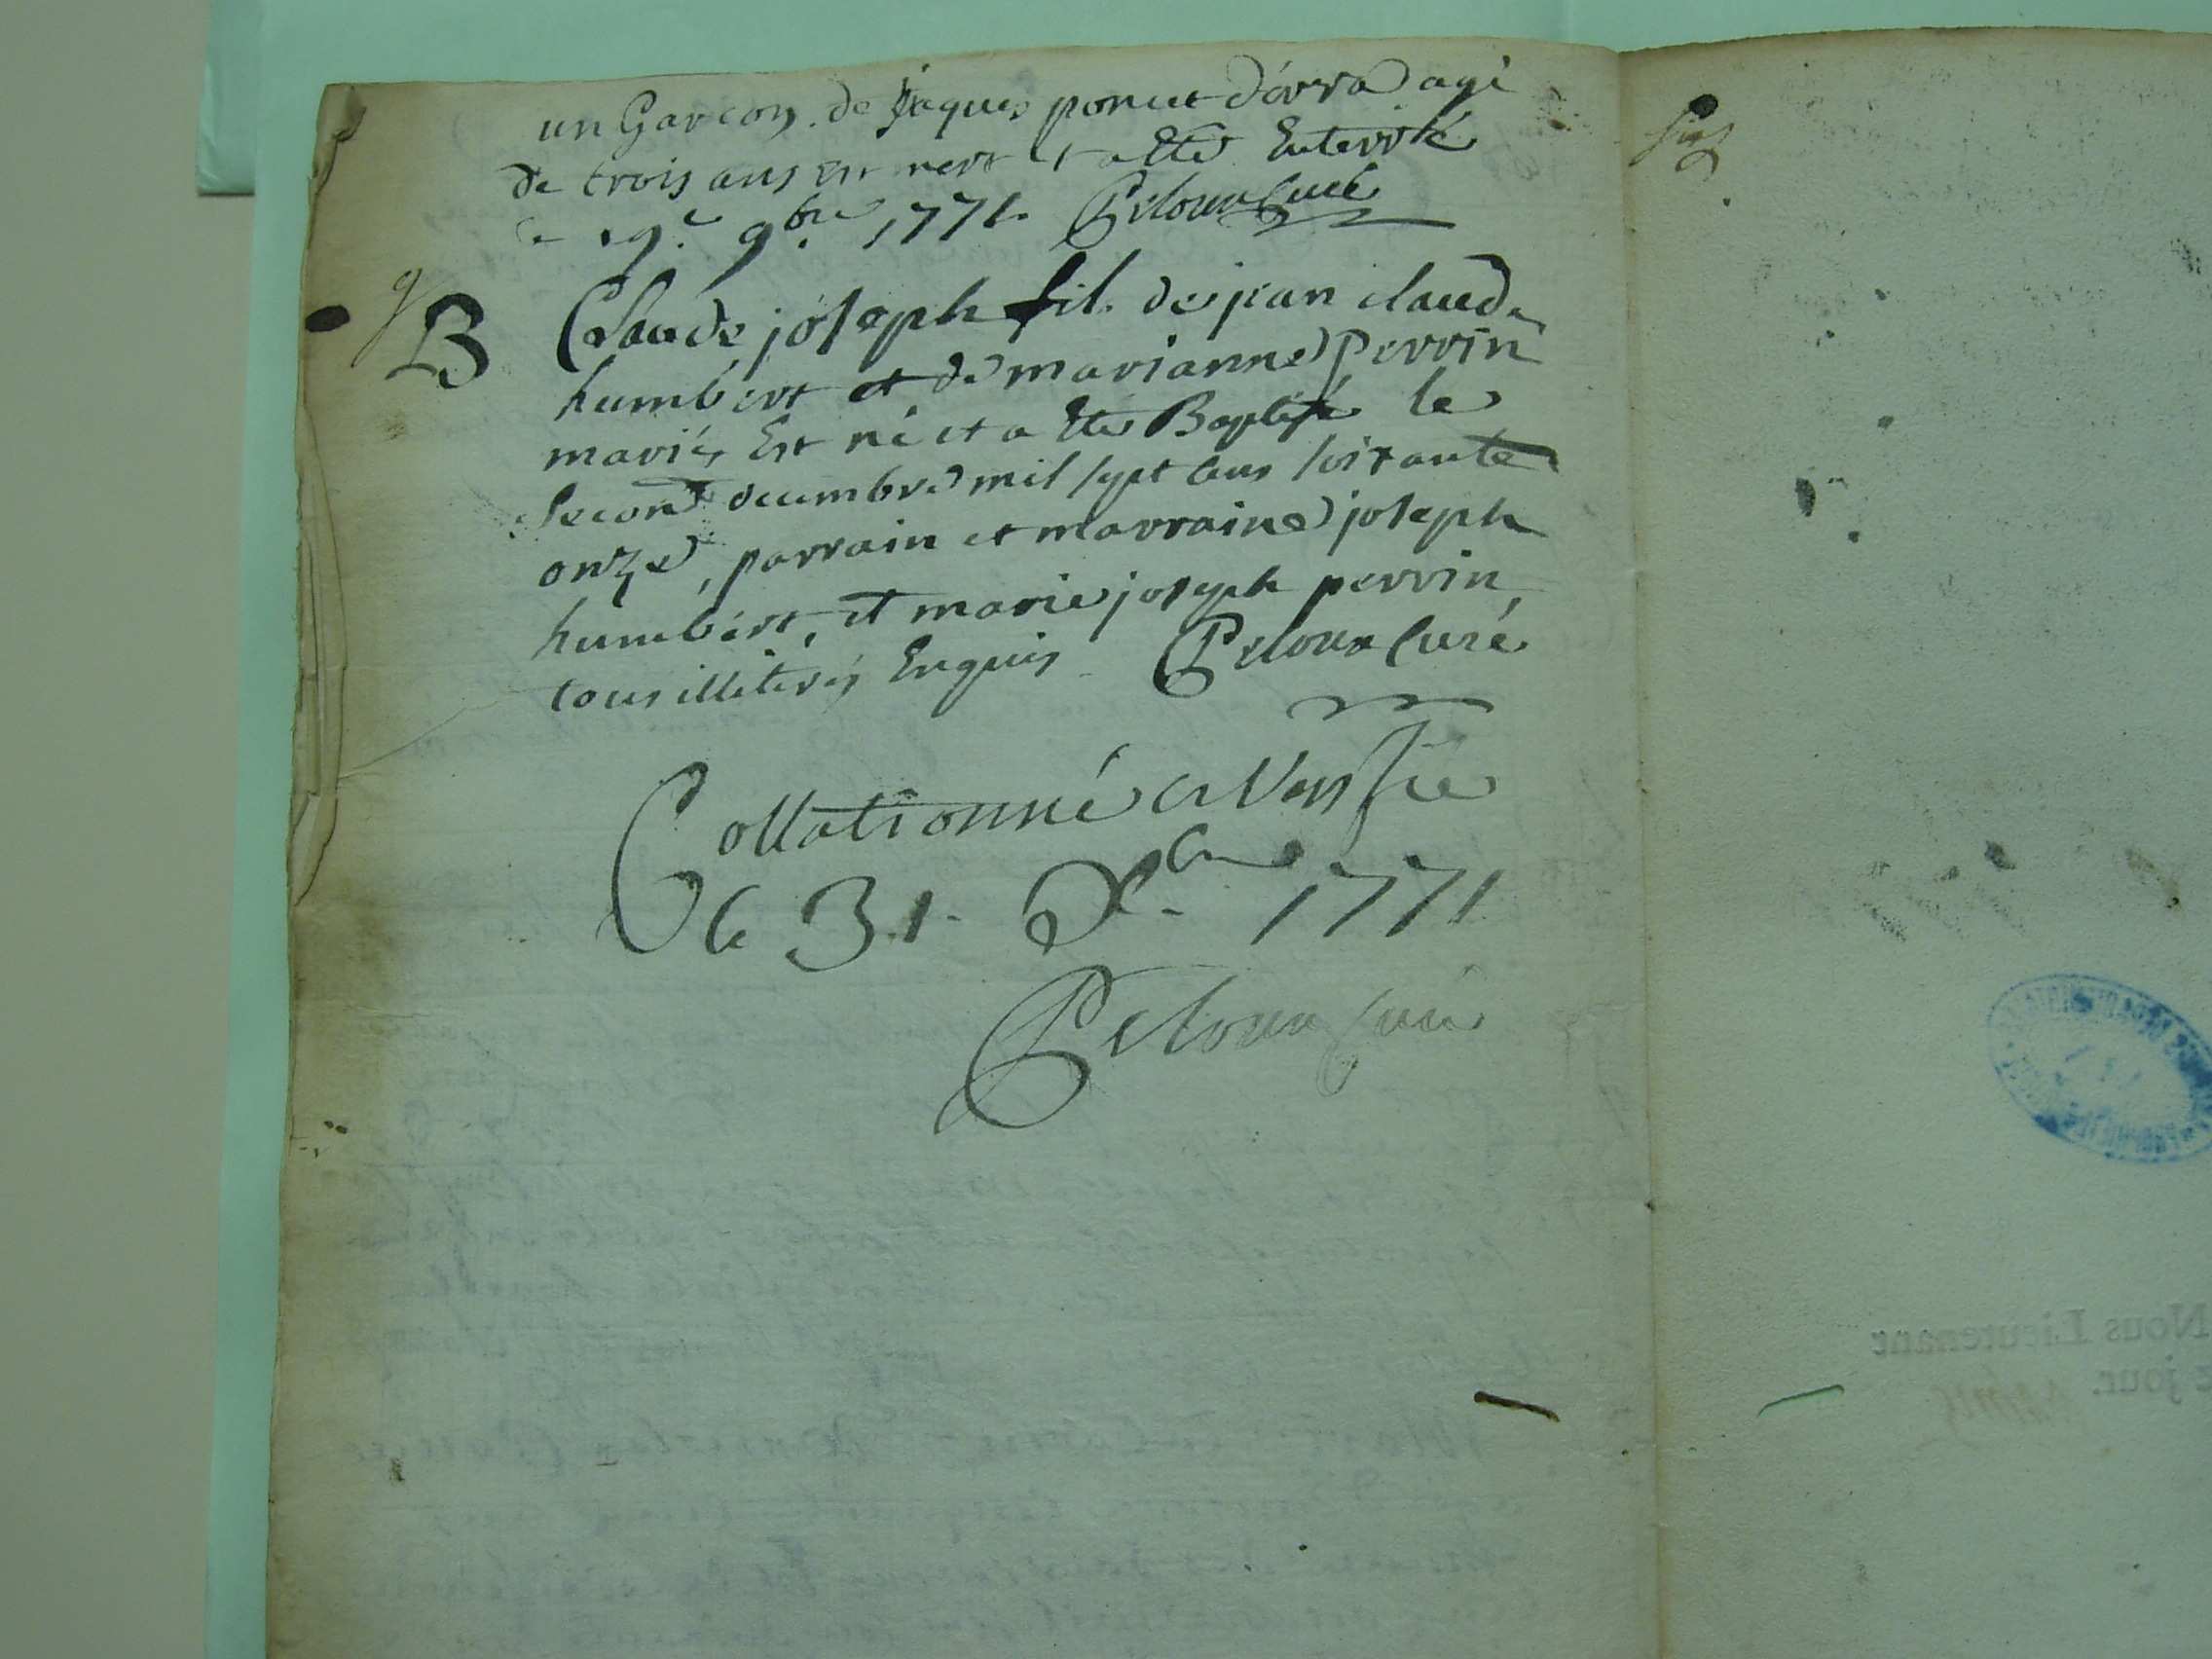 un Garcon de jaques poncet d'orra agé
de trois ans est mort et a Eté Enterré
le 19.e 9.bre 1771. Peloux Curé
B Claude joseph fil. de jean claude
humbert et de marianne perrin
mariés Est né et a Eté Baptisé le
Second decembre mil sept cens soixante
onze, parrain et marraine joseph
humbert, et marie joseph perrin
tous illiterés Enquis Peloux Curé
Collationné a
le 31. Xbre 1771
Peloux Curé
Nous Lieutenant
jour.